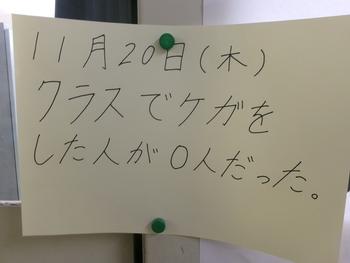 11月20日(木)
クラスでケガを
した人が0人だった。